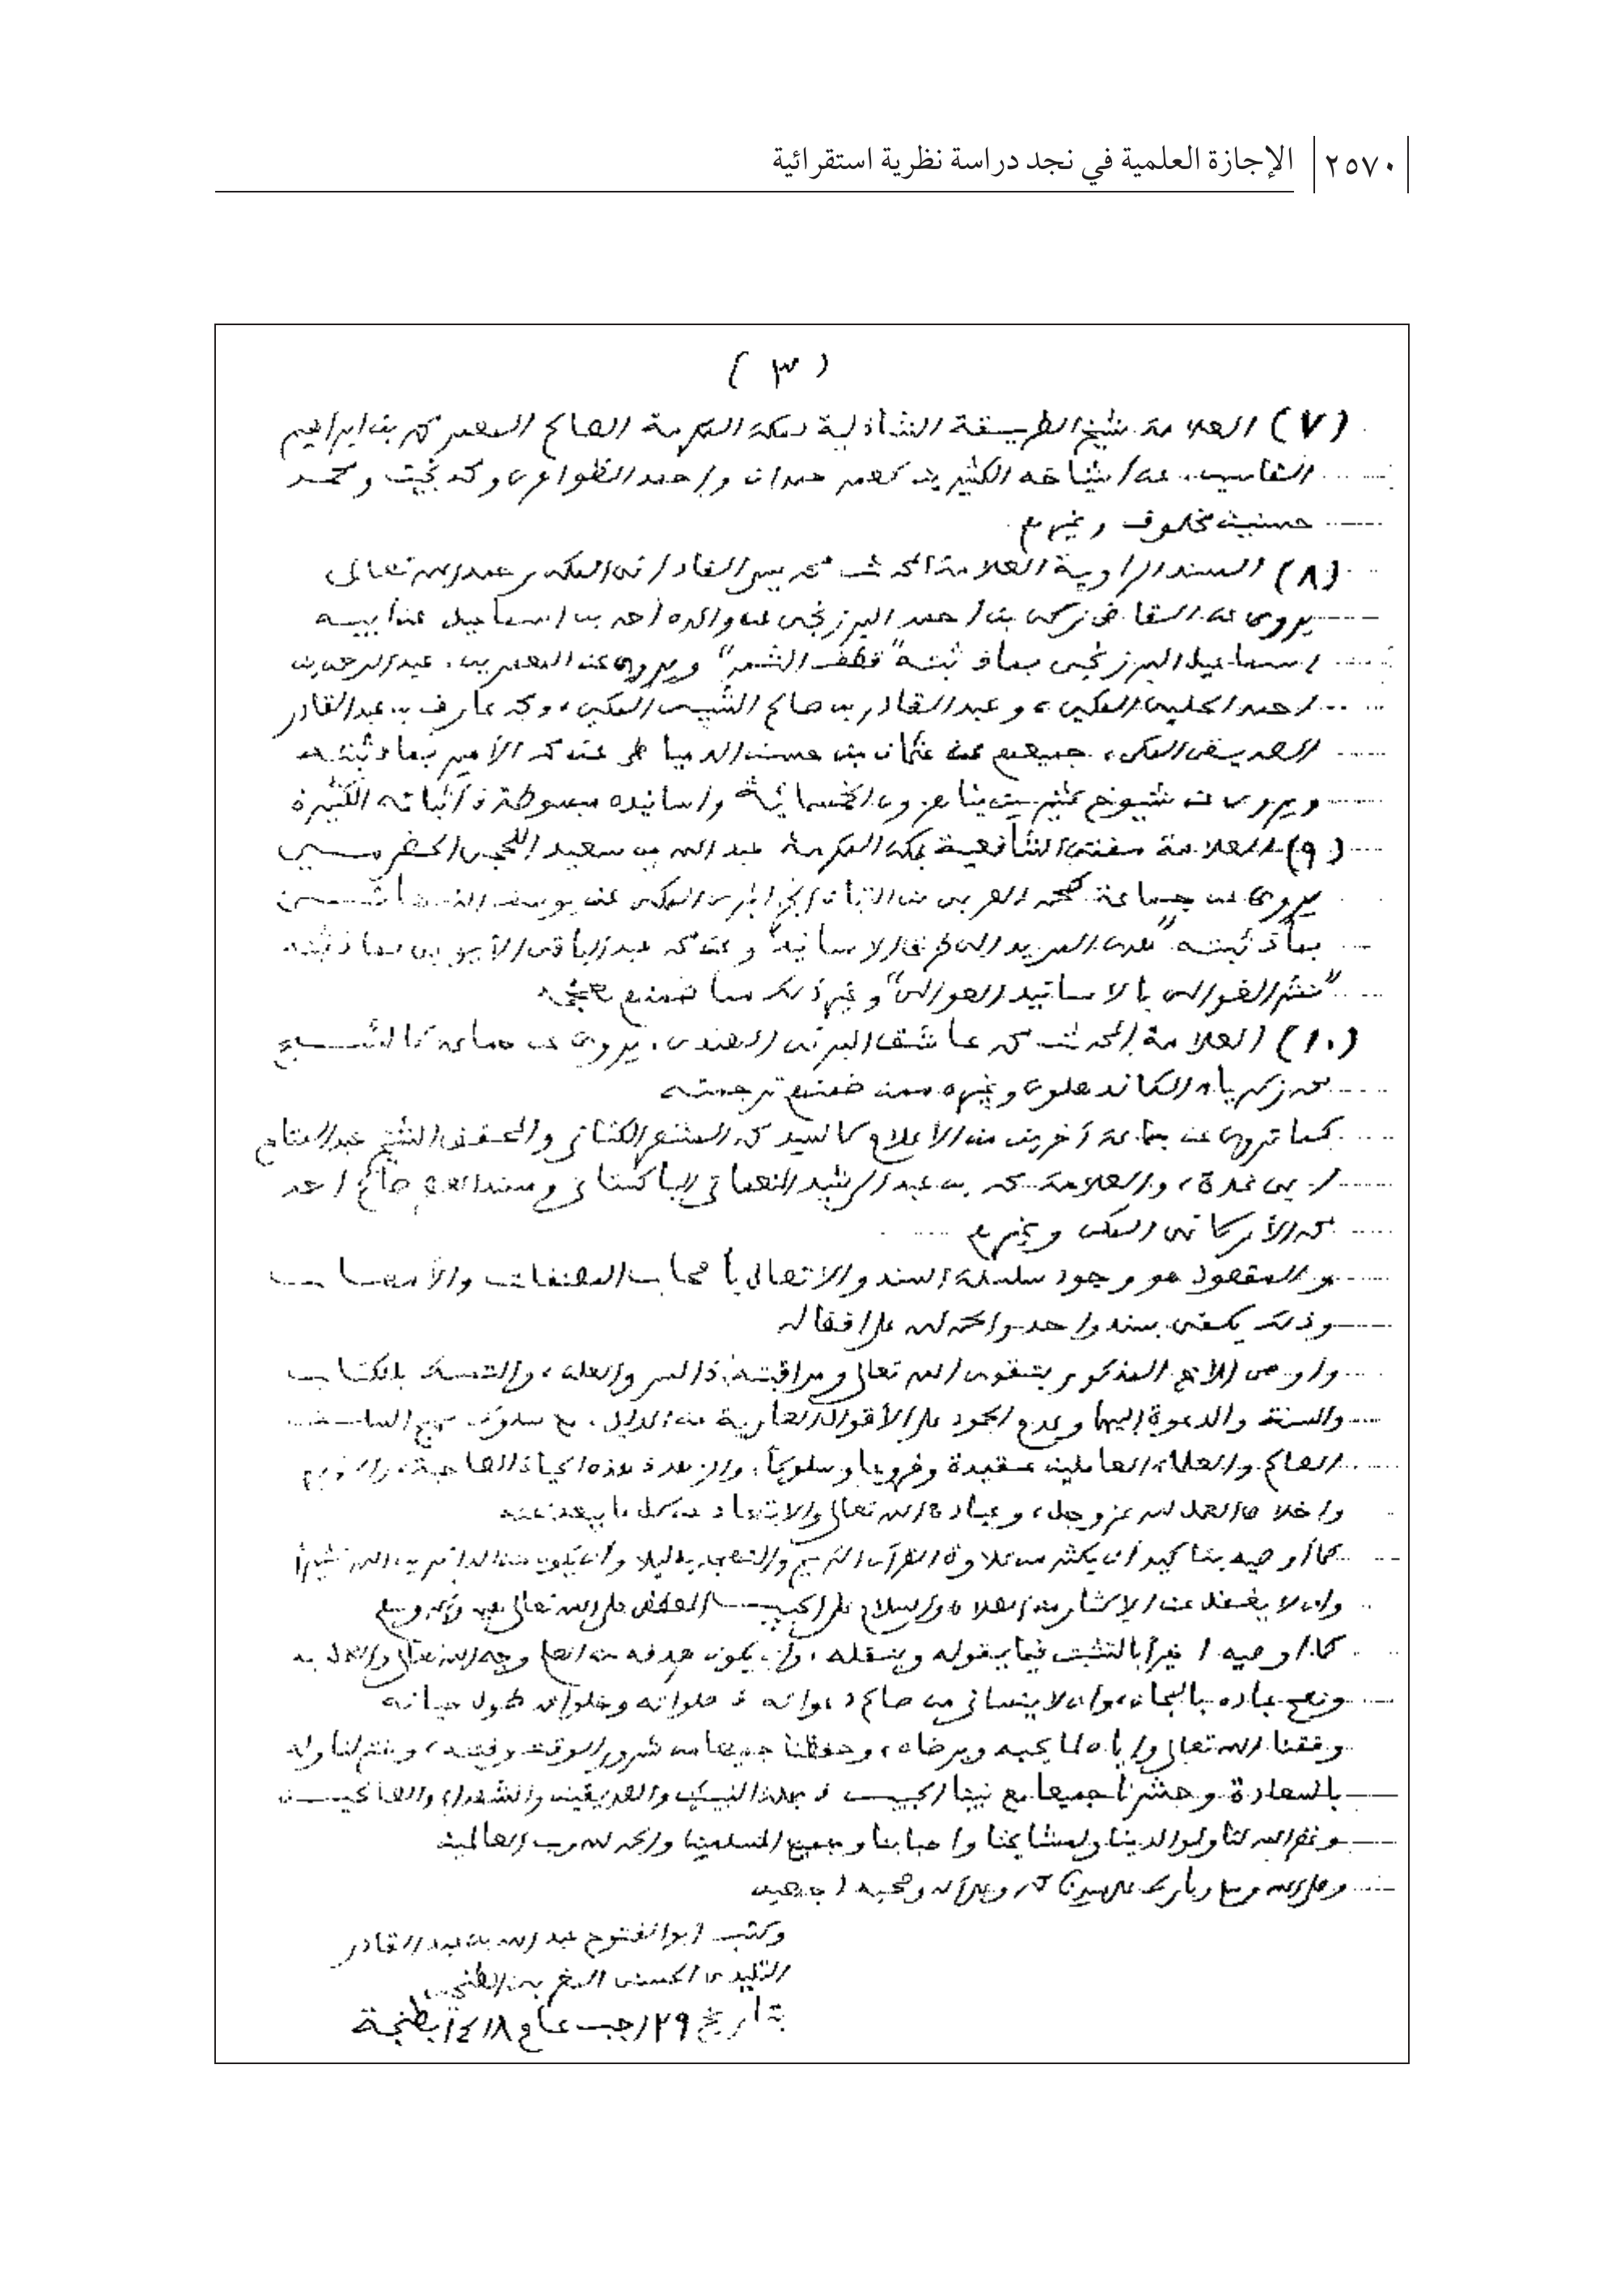 ٢٥٧٠ الإجازة العلمية في نجد دراسة نظرية استقرائية
( ٣ )
(٧) العلامة شيخ الطريقة الشاذلية بمكة المكرمة الصالح المعمر محمد بن ابراهيم
الفاسي، عن أشياخه الكثيرين كعمر حمدان وأحمد الظواهري ومحمد بخيت ومحمد
حسنين مخلوف وغيرهم
(٨) المسند الراوية العلامة المحدث محمد يس الفاداني المكي رحمه الله تعالى
يروي عن القاضي زكي بن أحمد البرزنجي عن والده أحمد بن اسماعيل عن أبيه
اسماعيل البرزنجي بما في ثبته "قطف الثمر" ويروي عن المعمرين، عبد الرحمن بن
احمد الحلبي المكي، وعبد القادر بن صالح الشيبي المكي، ومحمد عارف بن عبد القادر
المكي، جميعهم عن عثمان بن حسن الدمياطي عن محمد الأمير بما في ثبته
ويروي عن شيوخ كثيرين يناهزون الخمسمائة وأسانيده مبسوطة في أثباته الكثيرة
(٩) العلامة مفتي الشافعية بمكة المكرمة عبد الله بن سعيد اللحجي الحضرمي
يروي عن جماعة كمحمد العربي بن التباني الجزائري المكي عن يوسف
بما في ثبته "هادي المريد إلى طرق الاسانيد" وعن محمد عبد الباقي الأيوبي بما في ثبته
"نشر الغوالي بالاسانيد العوالي" وغير ذلك مما ضمنه
(١٠) العلامة المحدث محمد عاشق البرني الهندي، يروي عن جماعة كالشيخ
محمد زكرياء الكاندهلوي وغيره ممن ضمنهم ترجمته
كما نروي عن جماعة آخرين من الأعلام كالسيد محمد المنتصر الكتاني والمحقق الشيخ عبد الفتاح
أبي غدة، والعلامة محمد بن عبد الرشيد النعماني الباكستاني ومنهم صالح احمد
محمد الأركاني المكي وغيرهم
والمقصود هو وجود سلسلة السند والاتصال بأصحاب المصنفات
وذلك يكفي بسند واحد والحمد لله على افضاله
وأوصي الأخ المذكور بتقوى الله تعالى ومراقبته في السر والعلن، والتمسك بالكتاب
والسنة والدعوة إليها وعدم الجمود على الأقوال العارية من الدليل، مع سلوك نهج السلف
الصالح والعلماء العاملين عقيدة وفروعا وسلوكا، والزهد في هذه الحياة
واخلاص العمل لله عز وجل، وعبادة الله تعالى والابتعاد عن كل ما يبعد عنه
كما أوصيه بتأكيد أن يكثر من تلاوة القرآن الكريم والتهجد به ليلا وأن يكون من الذاكرين الله كثيراً
وان لا يغفل عن الإكثار من الصلاة والسلام على الحبيب المصطفى صلى الله تعالى عليه وآله وسلم
كما أوصيه أخيراً بالتثبت فيما يقوله وينقله، وأن يكون هدفه من العلم وجه الله تعالى والعمل به
ونصح عباده وان لا ينساني من صالح دعواته في خلواته وجلواته طول حياته
وفقنا الله تعالى وإياه لما يحبه ويرضاه، وحفظنا جميعا من شرور الوقت وفتنه، وختم لنا وله
بالسعادة وحشرنا جميعا مع نبينا الحبيب في جملة النبيين والصديقين والشهداء والصالحين
وغفر الله لنا ولوالدينا ولمشايخنا وأحبابنا وجميع المسلمين والحمد لله رب العالمين
وصلى الله وسلم وبارك على سيدنا محمد وعلى آله وصحبه أجمعين
وكتب أبو الفتوح عبد الله بن عبد القادر
التليدي الحسني المغربي الطنجي
بتاريخ ٢٩ رجب عام ١٤١٨ بطنجة